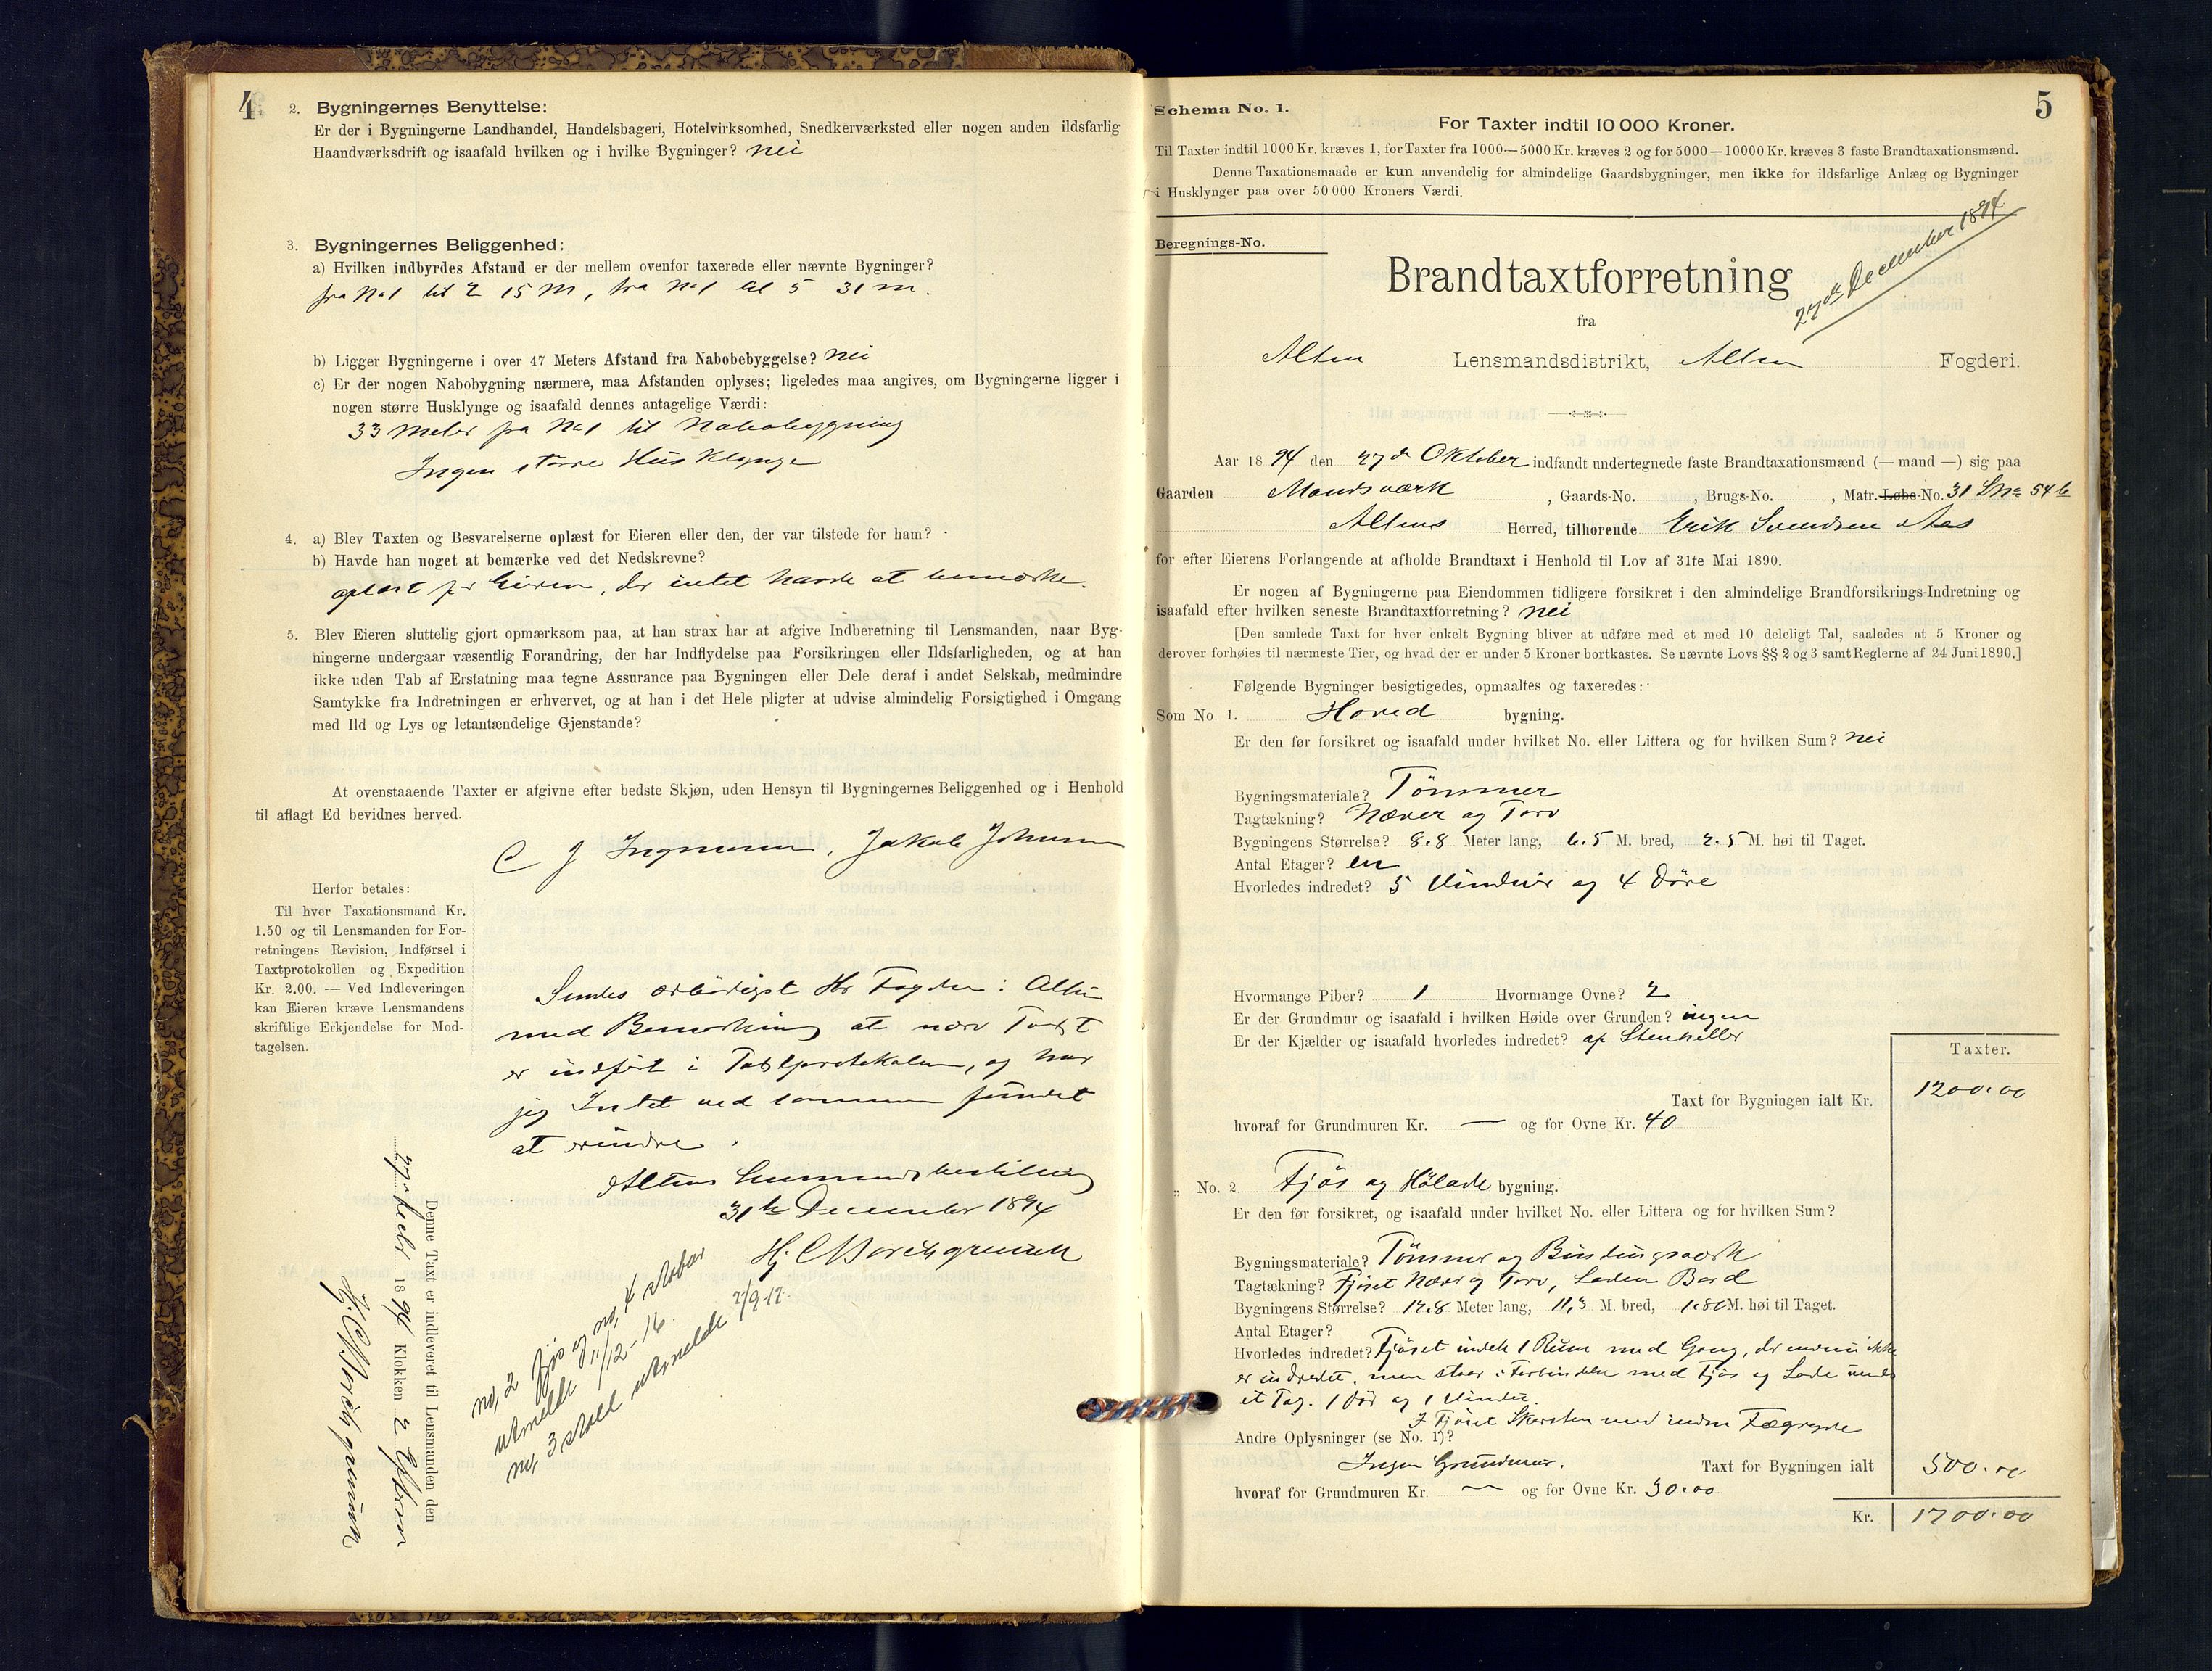 4
2. Bygningernes Benyttelse:
Er der i Bygningerne Landhandel, Handelsbageri, Hotelvirksomhed, Snedkerværksted eller nogen anden ildsfarlig
Haandværksdrift og isaafald hvilken og i hvilke Bygninger? nei
3. Bygningernes Beliggenhed:
a) Hvilken indbyrdes Afstand er der mellem ovenfor taxerede eller nævnte Bygninger?
fra No 1 til 2 15 m, fra No 1 til 5 31 m.
b) Ligger Bygningerne i over 47 Meters Afstand fra Nabobebyggelse? nei
c) Er der nogen Nabobygning nærmere, maa Afstanden oplyses; ligeledes maa angives, om Bygningerne ligger i
nogen større Husklynge og isaafald dennes antagelige Værdi:
33 Meter fra No 1 til Nabobygning
Ingen større Husklynge
4. a) Blev Taxten og Besvarelserne oplæst for Eieren eller den, der var tilstede for ham?
b) Havde han noget at bemærke ved det Nedskrevne?
oplæst for Eieren, der intet havde at bemærke.
5. Blev Eieren sluttelig gjort opmærksom paa, at han strax har at afgive Indberetning til Lensmanden, naar Byg-
ningerne undergaar væsentlig Forandring, der har Indflydelse paa Forsikringen eller Ildsfarligheden, og at han
ikke uden Tab af Erstatning maa tegne Assurance paa Bygningen eller Dele deraf i andet Selskab, medmindre
Samtykke fra Indretningen er erhvervet, og at han i det Hele pligter at udvise almindelig Forsigtighed i Omgang
med Ild og Lys og letantændelige Gjenstande?
At ovenstaaende Taxter er afgivne efter bedste Skjøn, uden Hensyn til Bygningernes Beliggenhed og i Henhold
til aflagt Ed bevidnes herved.
C J Ingmann, Jakob Johnsen
Herfor betales:
Til hver Taxationsmand Kr.
1.50 og til Lensmanden for For-
retningens Revision, Indførsel i
Taxtprotokollen og Expedition
Kr. 2.00. — Ved Indleveringen
kan Eieren kræve Lensmandens
skriftlige Erkjendelse for Mod-
tagelsen.
Sendes ærbødigst Hr Fogden i Alten
med Bemærkning at nærv Taxt
er indført i Taxtprotokolen, og har
jeg Intet ved samme fundet
at erindre.
Altens Lensmandsbestilling
31te December 1894
H. C Borchgrevink
Denne Taxt er indleveret til Lensmanden den
27de Decbr 1894 Klokken 2 Efterm
H. C Borchgrevink
no, 2 fjøs og no, 4 stabur
utmeldt 11/12-16.
no, 3 stall utmeldt 7/9-17.
5
Schema No. 1.
For Taxter indtil 10 000 Kroner.
Til Taxter indtil 1000 Kr. kræves 1, for Taxter fra 1000—5000 Kr. kræves 2 og for 5000—10000 Kr. kræves 3 faste Brandtaxationsmænd.
Denne Taxationsmaade er kun anvendelig for almindelige Gaardsbygninger, men ikke for ildsfarlige Anlæg og Bygninger
i Husklynger paa over 50 000 Kroners Værdi.
Beregnings-No.
27de December 1894
Brandtaxtforretning
fra
Alten Lensmandsdistrikt, Alten Fogderi.
Aar 1894 den 27de Oktober indfandt undertegnede faste Brandtaxationsmænd (— mand —) sig paa
Gaarden , Gaards-No. , Brugs-No. , Matr. Løbe-No. 31 LNo 54 b
Altens Herred, tilhørende Erik Svendsen Aas
for efter Eierens Forlangende at afholde Brandtaxt i Henhold til Lov af 31te Mai 1890.
Er nogen af Bygningerne paa Eiendommen tidligere forsikret i den almindelige Brandforsikrings-Indretning og
isaafald efter hvilken seneste Brandtaxtforretning? nei
[Den samlede Taxt for hver enkelt Bygning bliver at udføre med et med 10 deleligt Tal, saaledes at 5 Kroner og
derover forhøies til nærmeste Tier, og hvad der er under 5 Kroner bortkastes. Se nævnte Lovs §§ 2 og 3 samt Reglerne af 24 Juni 1890.]
Følgende Bygninger besigtigedes, opmaaltes og taxeredes:
Som No. 1. Hoved bygning.
Er den før forsikret og isaafald under hvilket No. eller Littera og for hvilken Sum? nei
Bygningsmateriale? Tømmer
Tagtækning? Næver og Torv
Bygningens Størrelse? 8.8 Meter lang, 6.5 M. bred, 2.5 M. høi til Taget.
Antal Etager? en
Hvorledes indredet? 5 Vinduer og 4 Døre
Hvormange Piber? 1 Hvormange Ovne? 2
Er der Grundmur og isaafald i hvilken Høide over Grunden? ingen
Er der Kjælder og isaafald hvorledes indredet? af Stenheller
Taxter.
Taxt for Bygningen ialt Kr. 1200.00
hvoraf for Grundmuren Kr. — og for Ovne Kr. 40
„ No. 2 Fjøs og Hølade bygning.
Er den før forsikret, og isaafald under hvilket No. eller Littera og for hvilken Sum?
Bygningsmateriale? Tømmer og Bindingsværk
Tagtækning? Fjøset Næver og Torv, Laden Bord
Bygningens Størrelse? 12.8 Meter lang, 11,3 M. bred, 1.80 M. høi til Taget.
Antal Etager?
Hvorledes indredet? Fjøset indeh 1 Rum med Gang, der endnu ikke
er indredet, men staar i Forbindelse med Fjøs og Lade under
et Tag. 1 Dør og 1 Vindu.
I Fjøset Skorsten med Fægryde
Andre Oplysninger (se No. 1)?
Ingen Grundmur. Taxt for Bygningen ialt 500.00
hvoraf for Grundmuren Kr. — og for Ovne Kr. 30.00
Kr. 1700.00